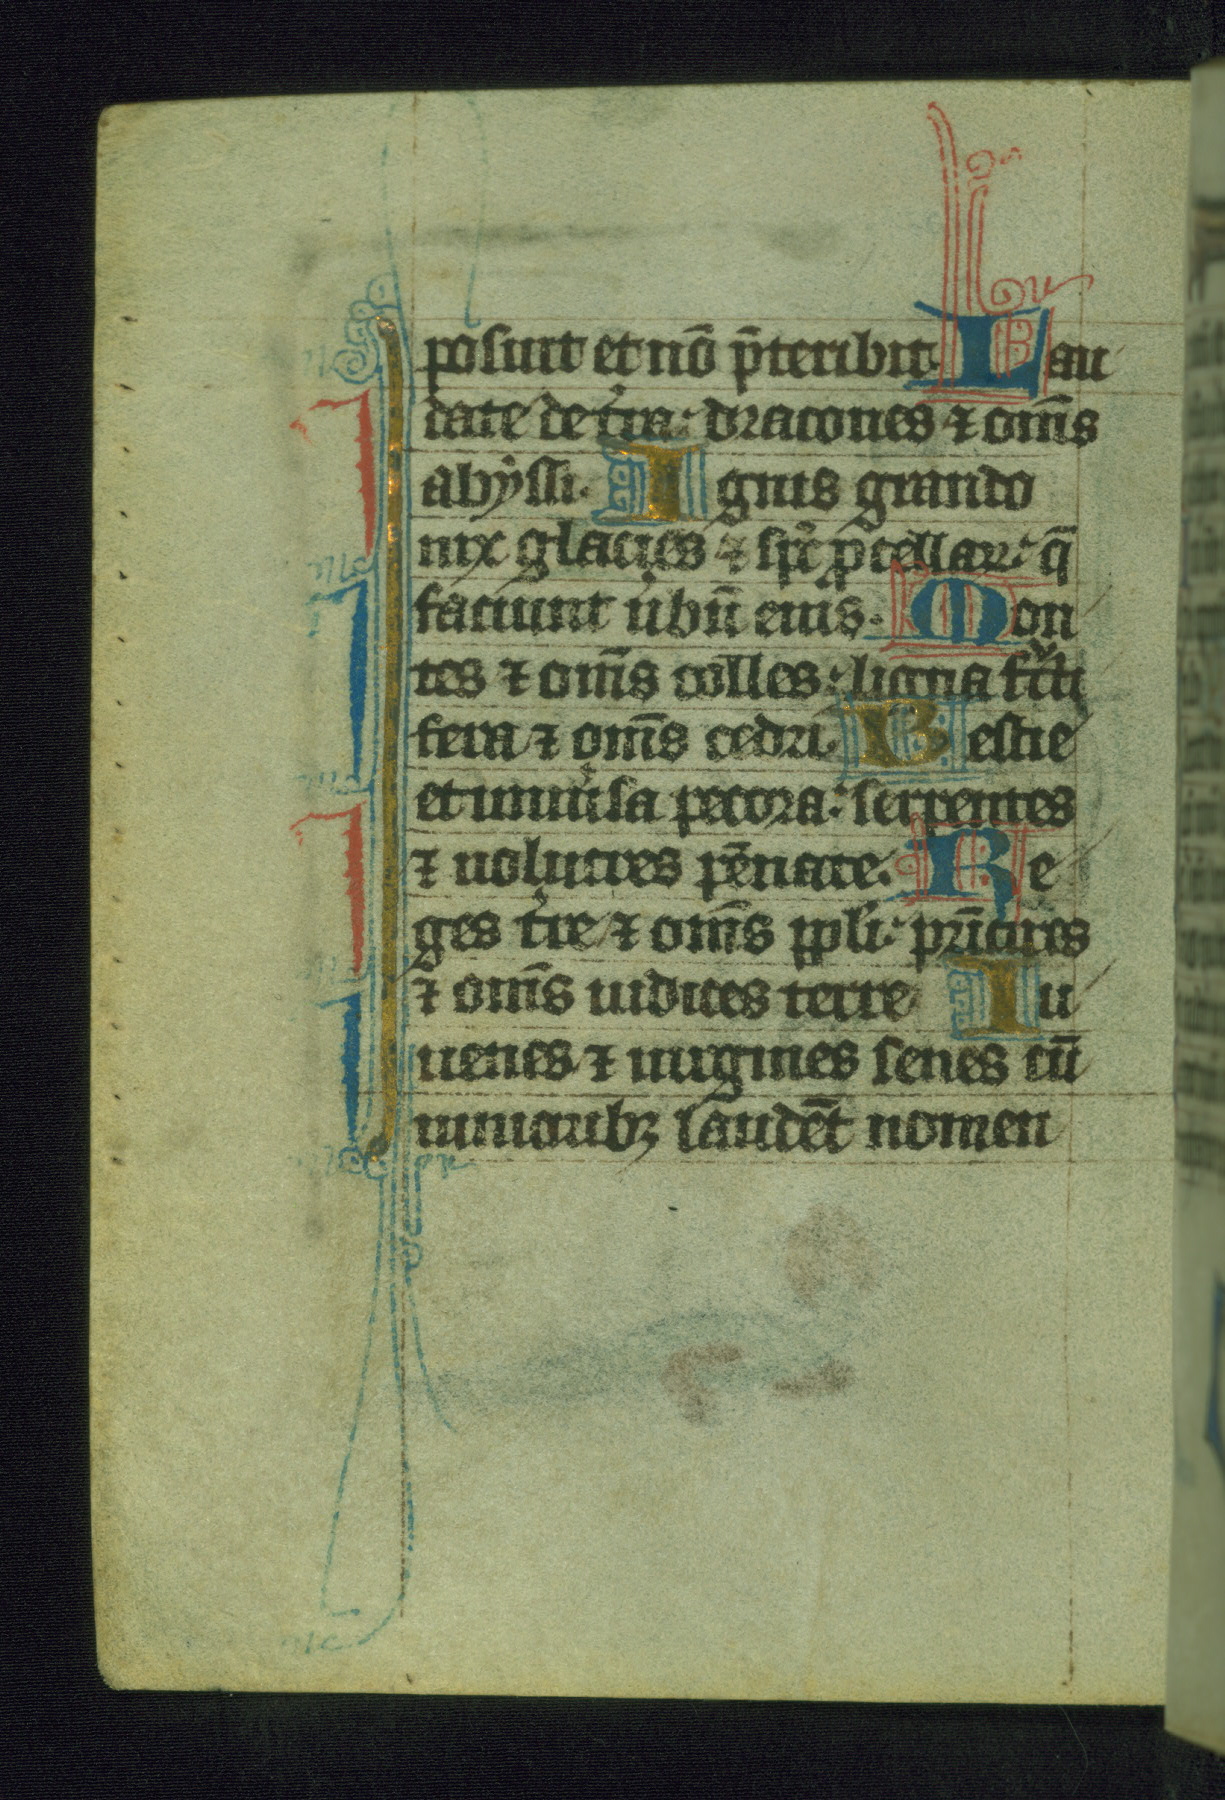 posuit et nō p̄teribit. Lau
date de t̾ra: dracones ⁊ om̄s
abẏssi. Ignis grando
nix glacies ⁊ sp̄c p̄cellar̄: q̄
faciunt u̾bū eius. Mon
tes ⁊ om̄s colles: ligna fͨti
fera ⁊ om̄s cedri. Bestie
et uniu̾sa pecora: serpentes
⁊ uolucres pēnate. Re
ges t̾re ⁊ om̄s ppli: pͥncipes
⁊ om̄s iudices terre Iu
uenes ⁊ uirgines senes cū
iunioribꝫ laudēt nomen